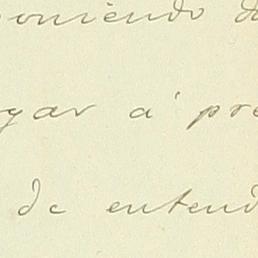 oniendo d
gar á pre
de entend